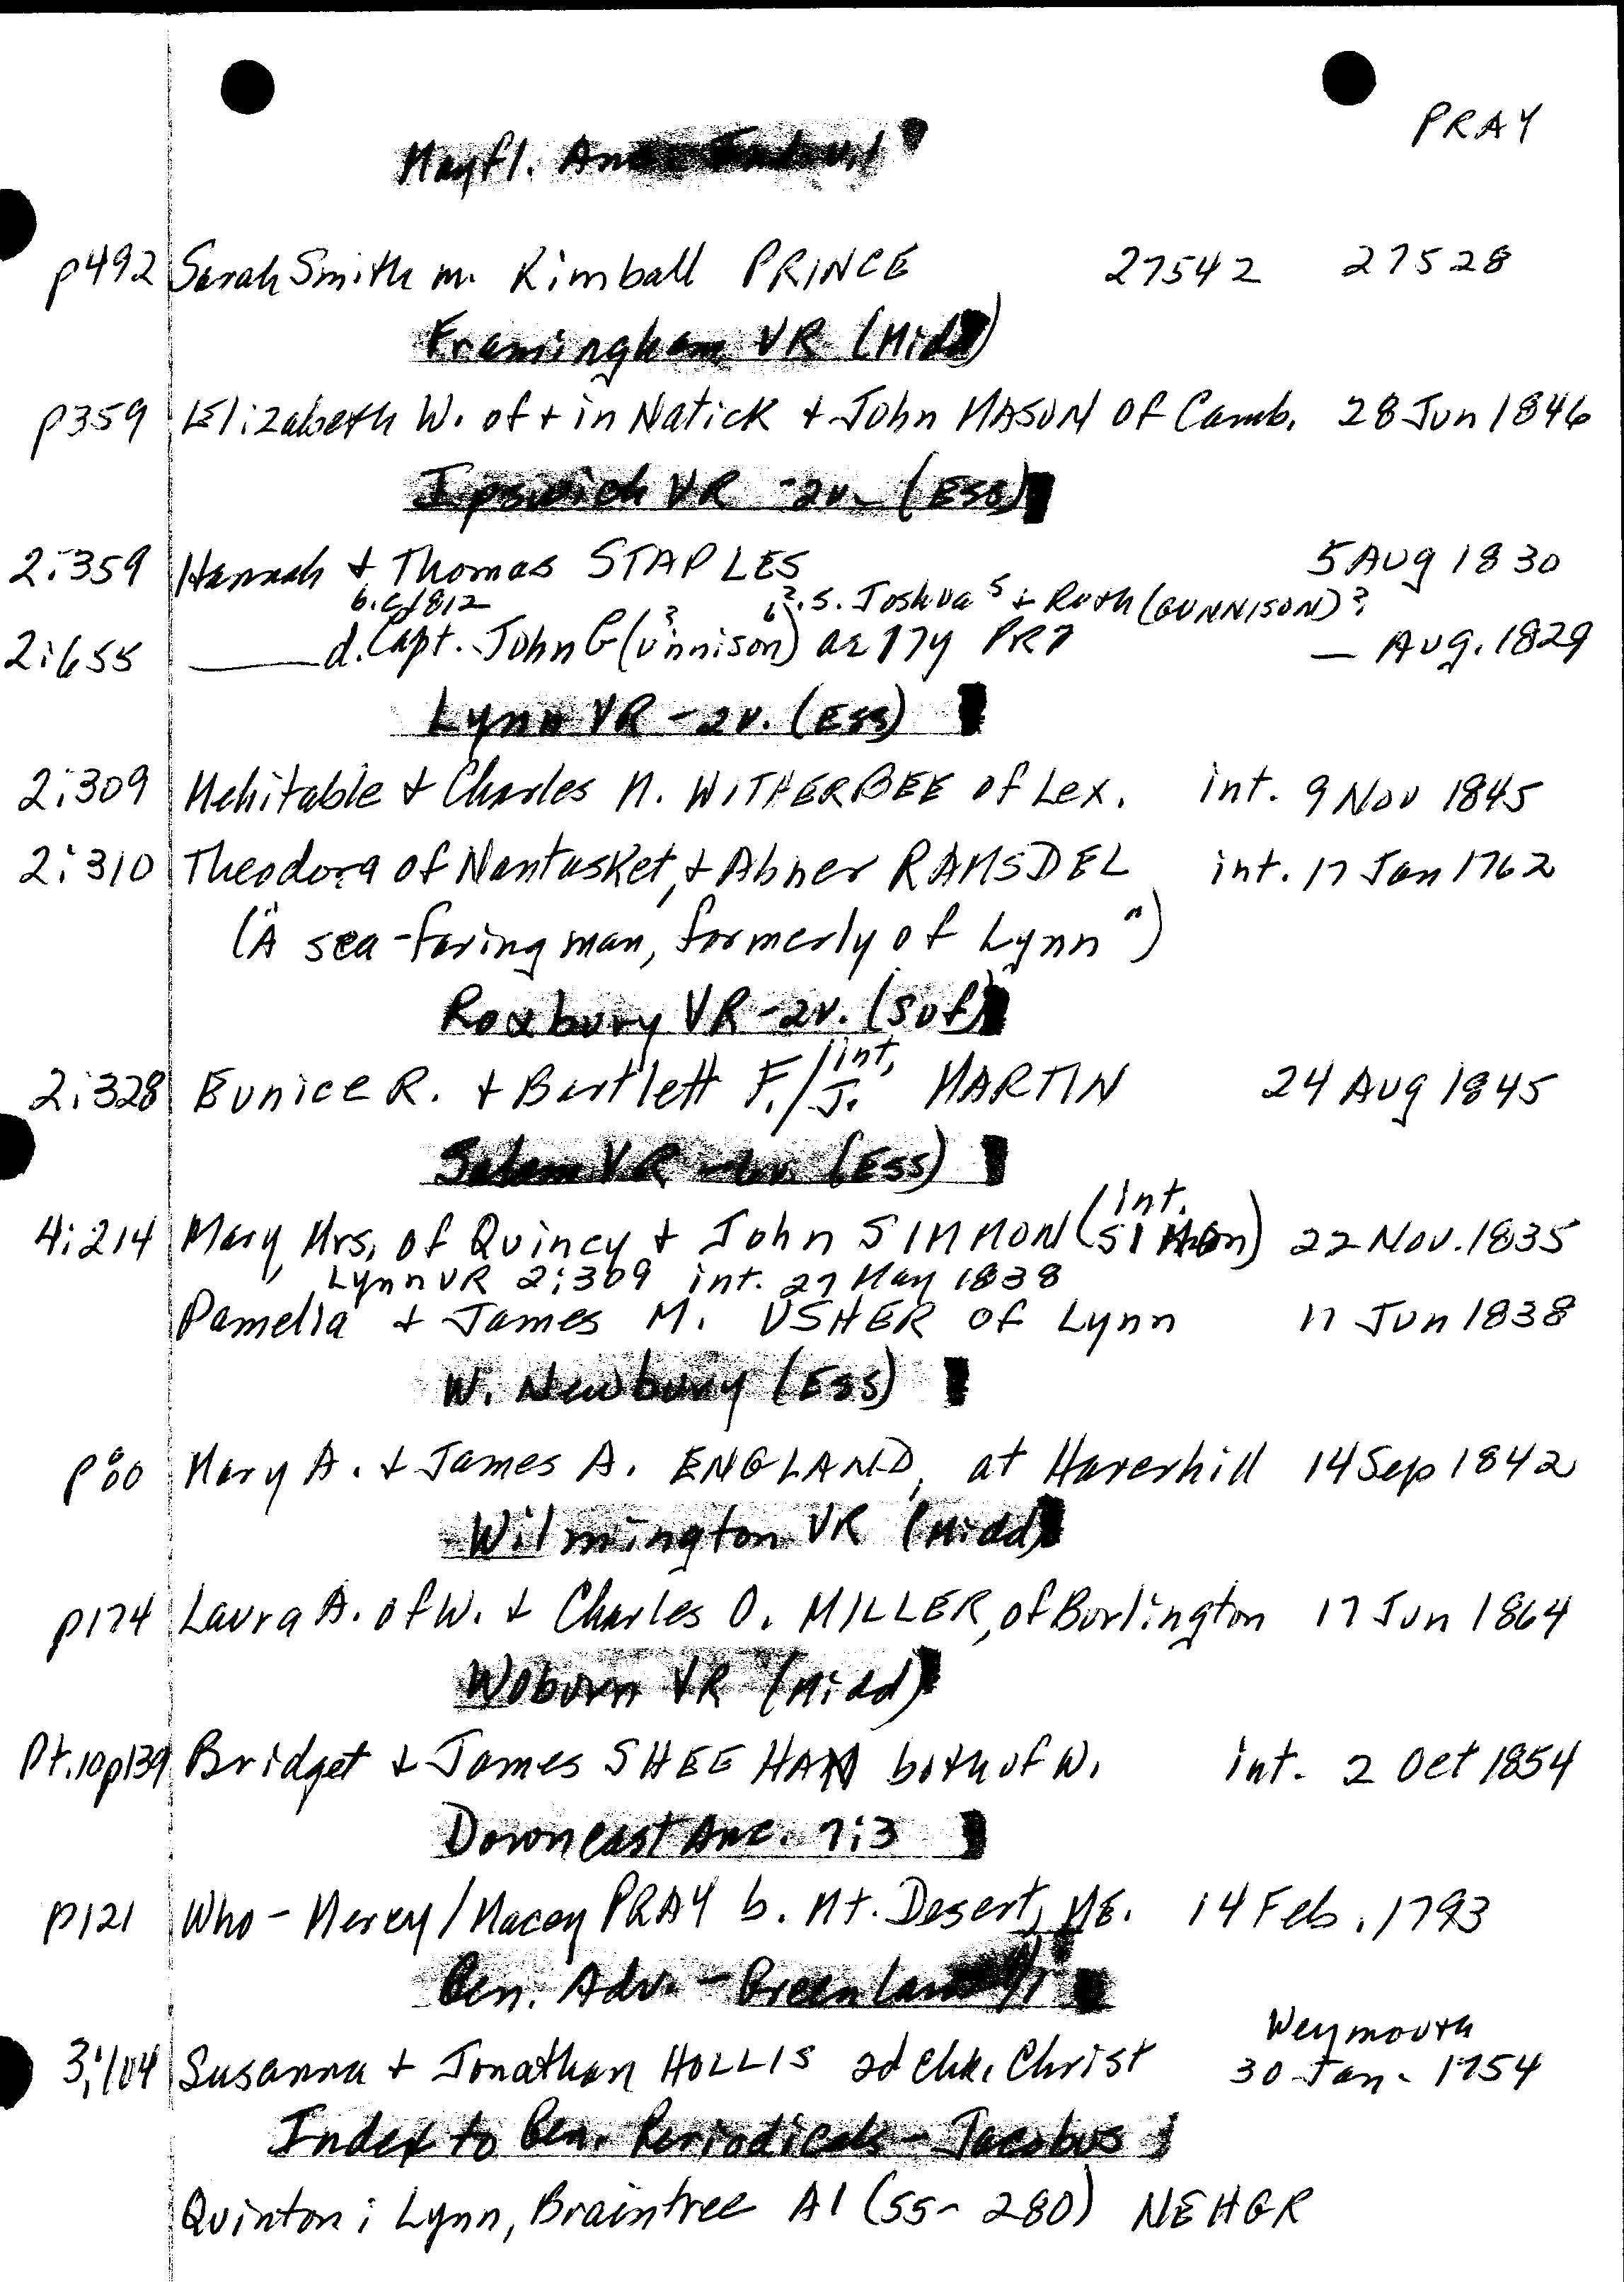 PRAY
Mayfl.
p492 Sarah Smith m. Kimball PRINCE 27542 27528
Framingham VR (Midd)
p359 Elizabeth W. of + in Natick + John MASON of Camb. 28 Jun 1846
Ipswich VR -2v- (Ess)
2:359 Hannah + Thomas STAPLES 5 Aug 1830
b. c1812 ?. s. Joshua 5 + Ruth (GUNNISON)?
2:655 d. Capt. John G (unnison) ? ae 17y PR7 — Aug. 1829
Lynn VR -2v. (Ess)
2:309 Mehitable + Charles N. WITHERBEE of Lex. int. 9 Nov 1845
2:310 Theodora of Nantasket, + Abner RAMSDEL int. 17 Jan 1762
("A sea-faring man, formerly of Lynn")
Roxbury VR -2v. (Suf)
int.
2:328 Eunice R. + Bartlett F./J. MARTIN 24 Aug 1845
Salem VR -6v. (Ess)
int.
4:214 Mary, Mrs. of Quincy + John SIMMON (SIMON) 22 Nov. 1835
Lynn VR 2:309 int. 27 May 1838
Pamelia + James M. USHER of Lynn 17 Jun 1838
W. Newbury (Ess)
Mary A. + James A. ENGLAND, at Haverhill 14 Sep 1842
Wilmington VR (Midd)
p174 Laura A. of W. + Charles O. MILLER, of Burlington 17 Jun 1864
Woburn VR (Midd)
Pt.10p139 Bridget + James SHEEHAN both of W. int. 2 Oct 1854
Downeast Anc. 7:3
p121 Who - Mercy/Macey PRAY b. Mt. Desert, ME. 14 Feb. 1793
Gen. Adv. - Greenlaw
Weymouth
3:104 Susanna + Jonathan HOLLIS 2d Chh. Christ 30 Jan. 1754
Index to Gen. Periodicals - Jacobus
Quinton; Lynn, Braintree A1 (55-280) NEHGR